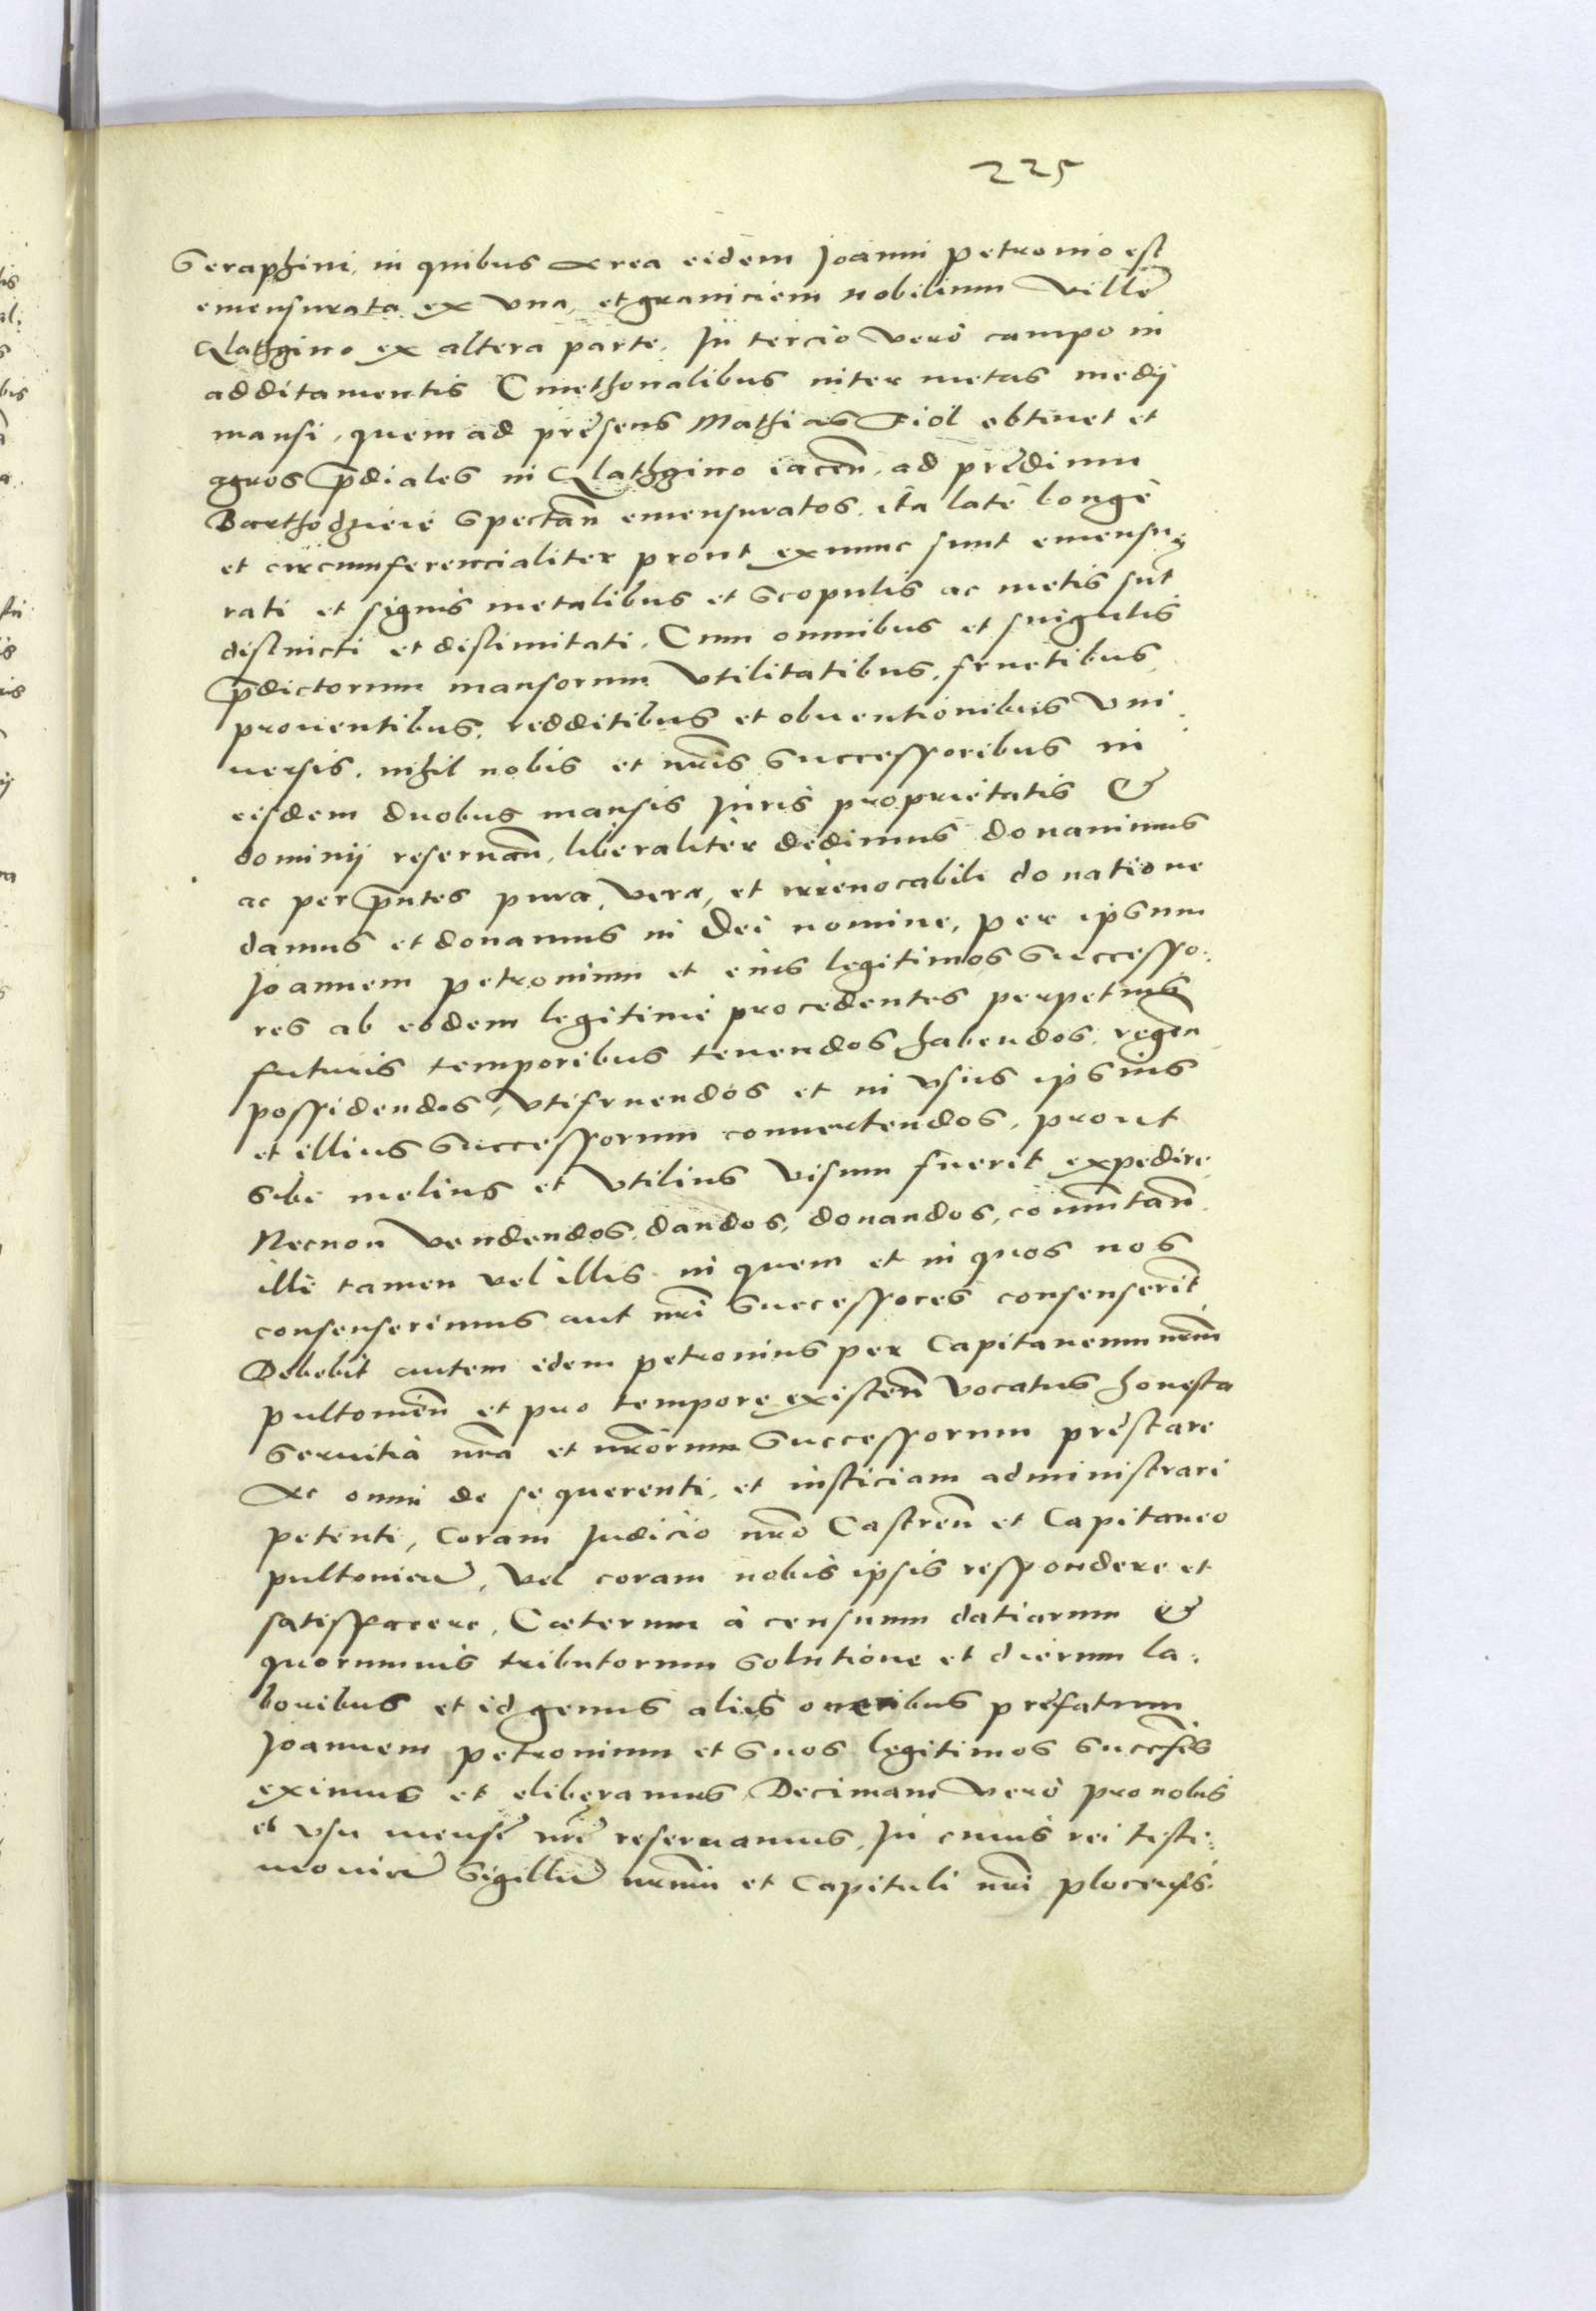 225
Seraphini, in quibus area eidem Joanni petronio est
emensurata ex vna, et graniciem nobilium Ville
Qlathzino ex altera parte. In tercio Vero campo in
additamentis Cmethonalibus inter metas medij
mansi, quem ad presens Mathias Fiol obtinet et
agros p̄diales in Qlathzino iaceñ. ad predium
Barthodzieie Spectañ emensuratos. ita late longe
et circumferencialiter prout exnunc sunt emensu⸗
rati et signis metalibus et Scopulis ac metis sūt
distincti et dislimitati. Cum omnibus et singulis
p̄dictorum mansorum Vtilitatibus, fructibus,
prouentibus, redditibus et obuentionibus Vni
uersis. nihil nobis et nr̄is Successoribus in
eisdem duobus mansis Juris proprietatis &
dominij reseruañ, liberaliter dedimus donauimus
ac per p̄ntes pura, Vera, et irreuocabili donatione
damus et donamus in Dei nomine, per ipsum
Joannem petronium et eius legitimos Successo⸗
res ab eodem legitime procedentes perpetuis
futuris temporibus tenendos habendos, regeñ
possidendos, Vtifruendos et in vsus ipsius
et illius Successorum conuertendos, prout
Sibi melius et Vtilius Visum fuerit expedire
Necnon Vendendos, dandos, donandos, cōmutañ.
illi tamen vel illis in quem et in quos nos
consenserimus aut nr̄i Successores consenserīt
Debebit autem idem petronius per Capitaneum nr̄um
pultouieñ et pro tempore existeñ Vocatus honesta
Seruitia nr̄a et nr̄orum Successorum prestare
Ac omni de se querenti, et iusticiam administrari
petenti, Coram Judicio nr̄o Castreñ et Capitaneo
pultouieñ, Vel coram nobis ipsis respondere et
satisfacere. Cæterum à censuum datiarum &
quorumuis tributorum Solutione et dierum la⸗
boribus et id genus aliis oneribus prefatum
Joannem petronium et Suos legitimos Succ̄ses
eximus et eliberamus. Decimam Vero pro nobis
et vsu mense nr̄e reseruamus. In cuius rei testi⸗
moniū Sigillū nr̄um et Capituli nr̄i plocensis.